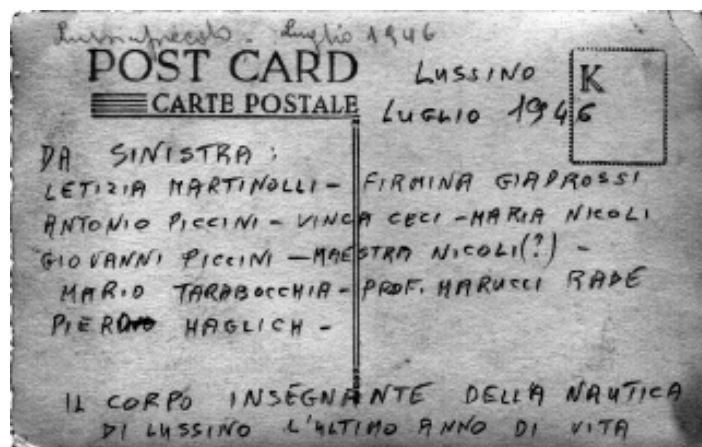 Lussinpiccolo - Luglio 1946
POST CARD
CARTE POSTALE
K
LUSSINO
LUGLIO 1946
DA SINISTRA:
LETIZIA MARTINOLLI - FIRMINA GIADROSSI
ANTONIO PICCINI - VINCA CECI - MARIA NICOLI
GIOVANNI PICCINI - MAESTRA NICOLI(?) -
MARIO TARABOCCHIA - PROF. MARUCCI RADE
PIERO HAGLICH -
IL CORPO INSEGNANTE DELLA NAUTICA
DI LUSSINO L'ULTIMO ANNO DI VITA